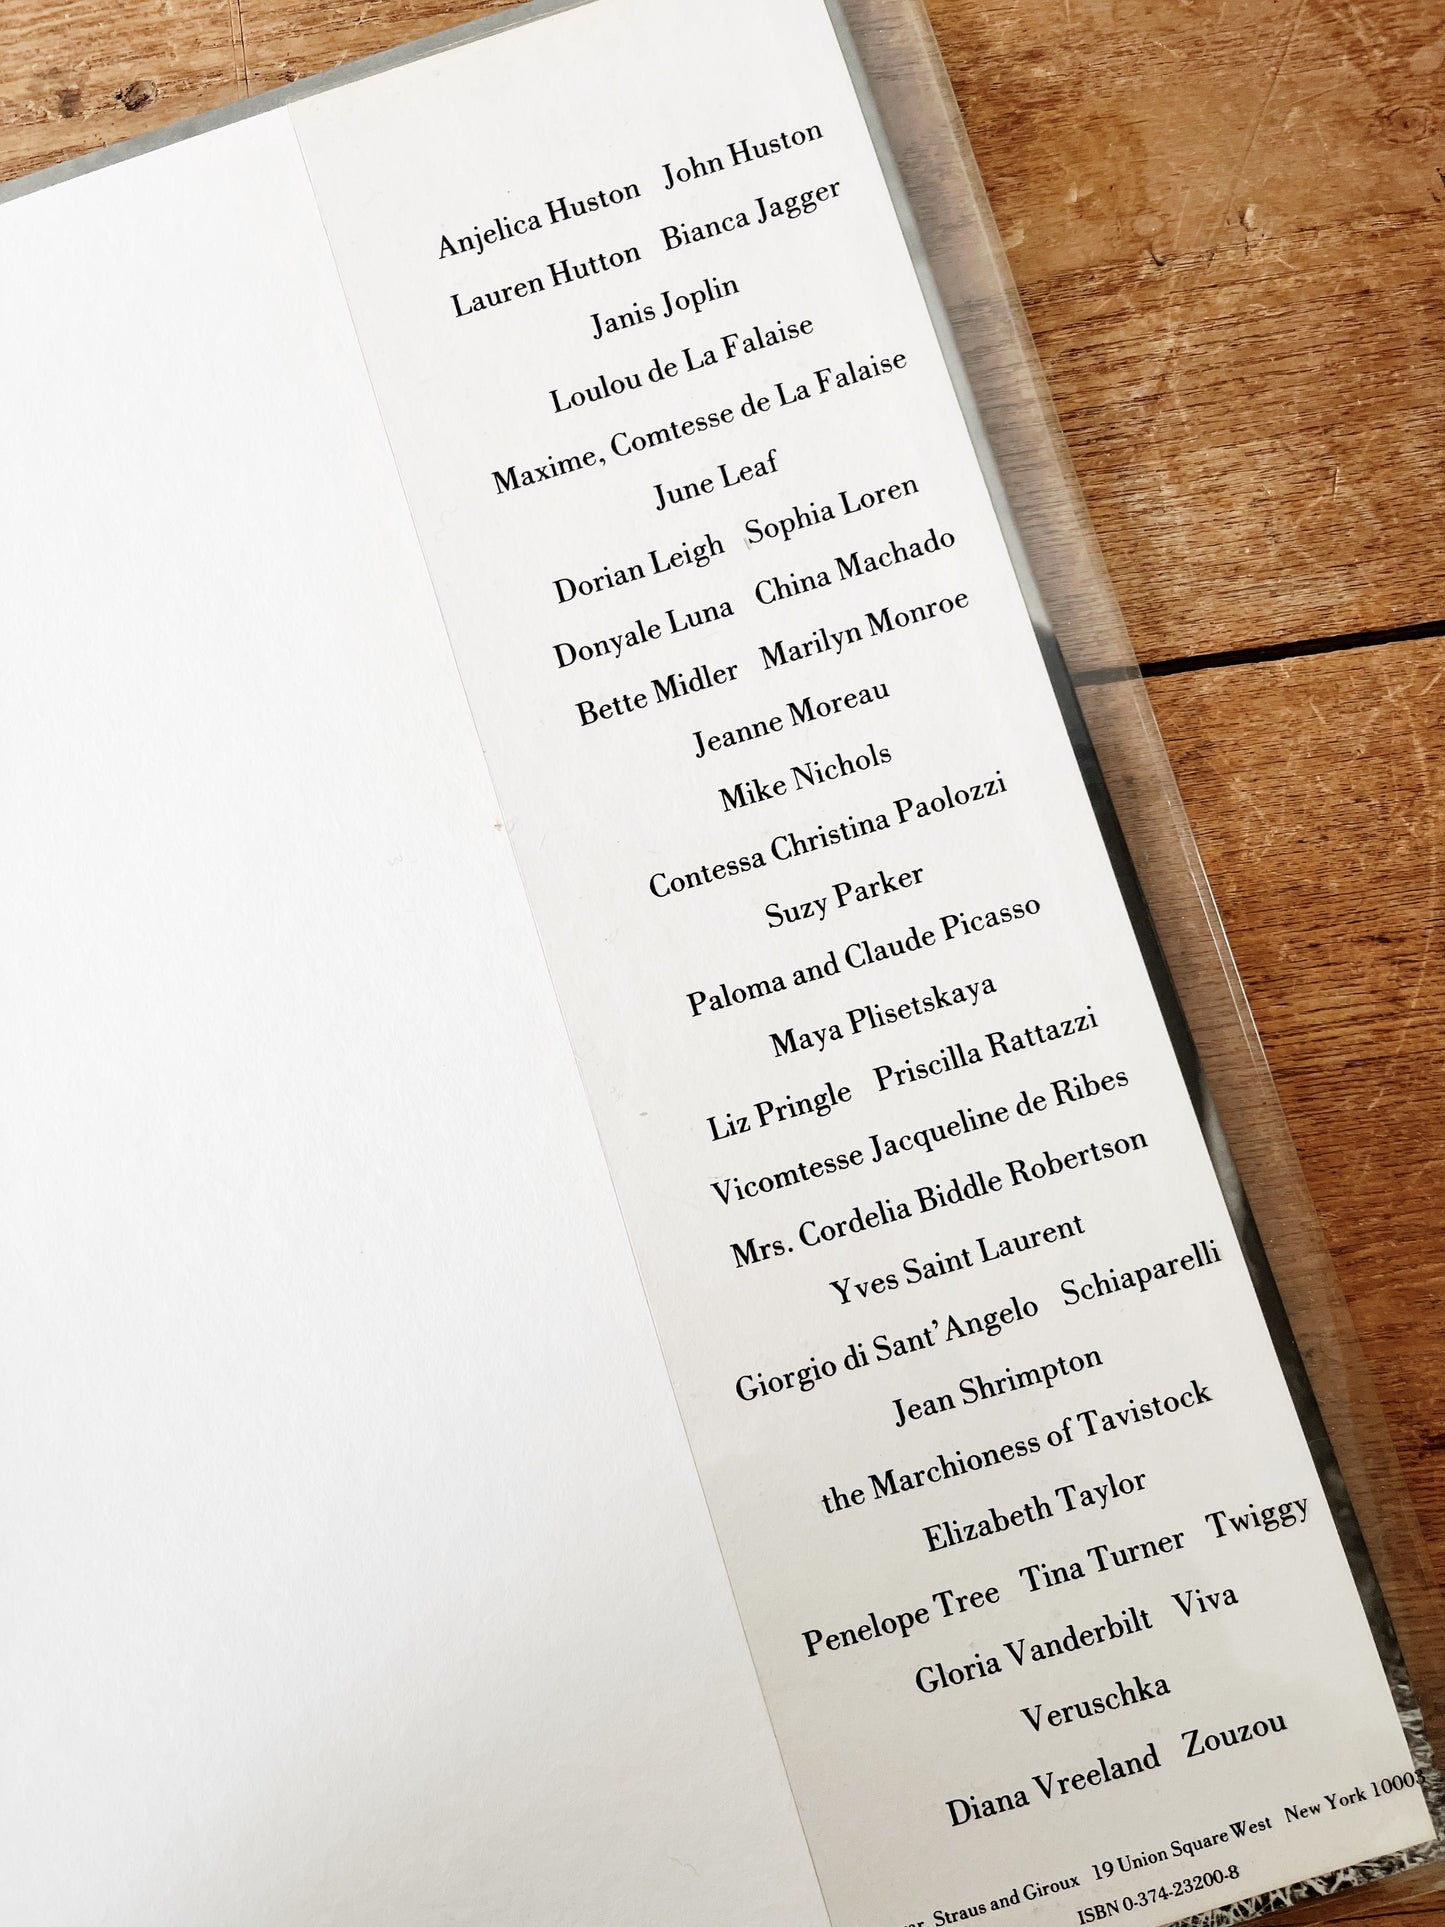 Anjelica Huston John Huston
Lauren Hutton Bianca Jagger
Janis Joplin
Loulou de La Falaise
Maxime, Comtesse de La Falaise
June Leaf
Dorian Leigh Sophia Loren
Donyale Luna China Machado
Bette Midler Marilyn Monroe
Jeanne Moreau
Mike Nichols
Contessa Christina Paolozzi
Suzy Parker
Paloma and Claude Picasso
Maya Plisetskaya
Liz Pringle Priscilla Rattazzi
Vicomtesse Jacqueline de Ribes
Mrs. Cordelia Biddle Robertson
Yves Saint Laurent
Giorgio di Sant’Angelo Schiaparelli
Jean Shrimpton
the Marchioness of Tavistock
Elizabeth Taylor
Penelope Tree Tina Turner Twiggy
Gloria Vanderbilt Viva
Veruschka
Diana Vreeland Zouzou
Straus and Giroux 19 Union Square West New York 10003
ISBN 0-374-23200-8